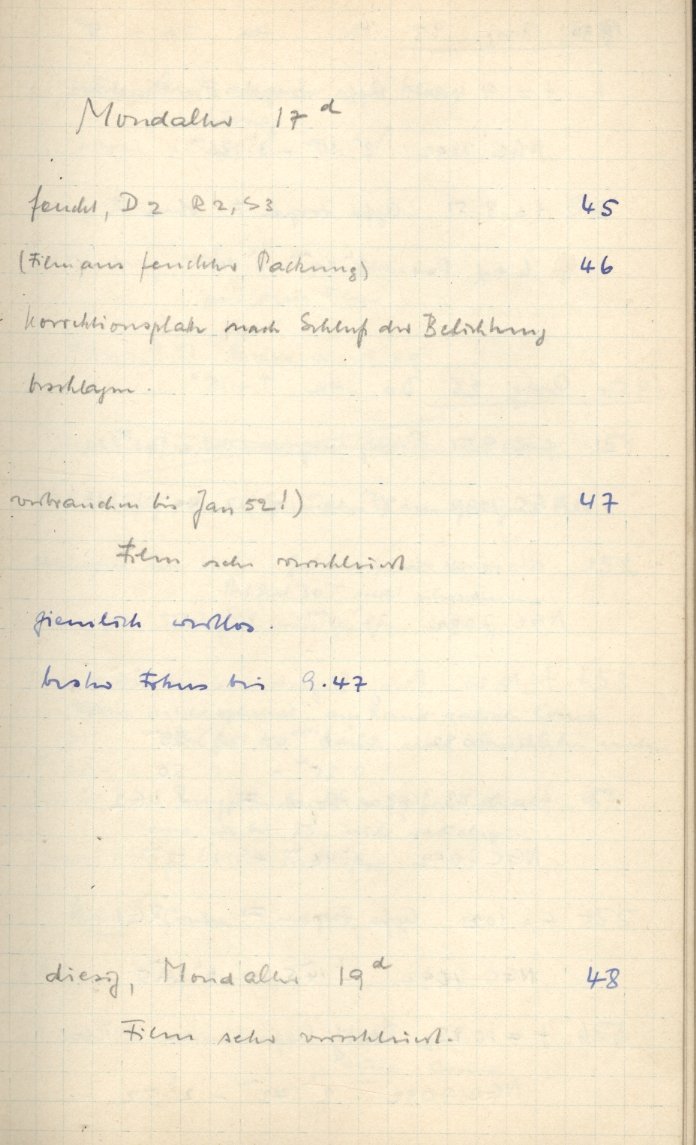 Mondalter 17 d
feucht, D2 R2, S3 45
(Film aus feuchter Packung) 46
Korrektionsplatte nach Schluß der Belichtung
beschlagen.
verbrauchen bis Jan 52!) 47
Film sehr verschleiert
ziemlich wertlos.
bester Fokus bis 9.47
diesig, Mondalter 19 d 48
Film sehr verschleiert.